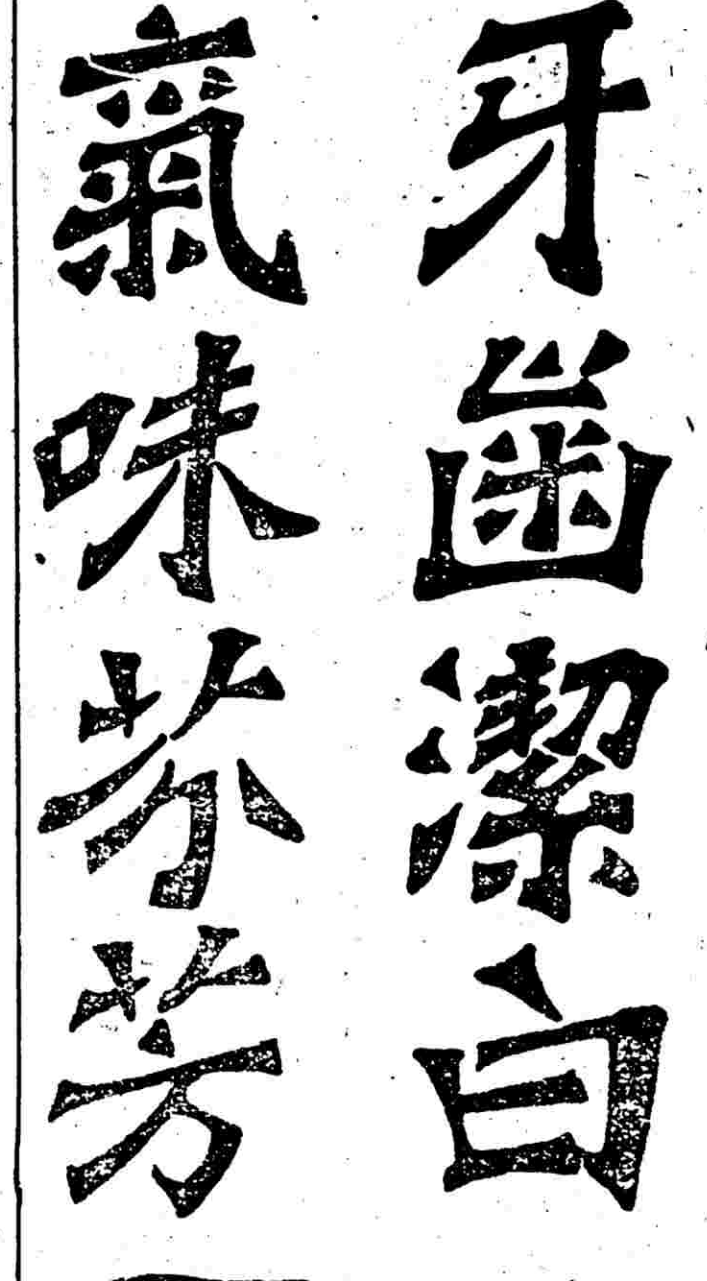 牙齒潔白
氣味芬芳